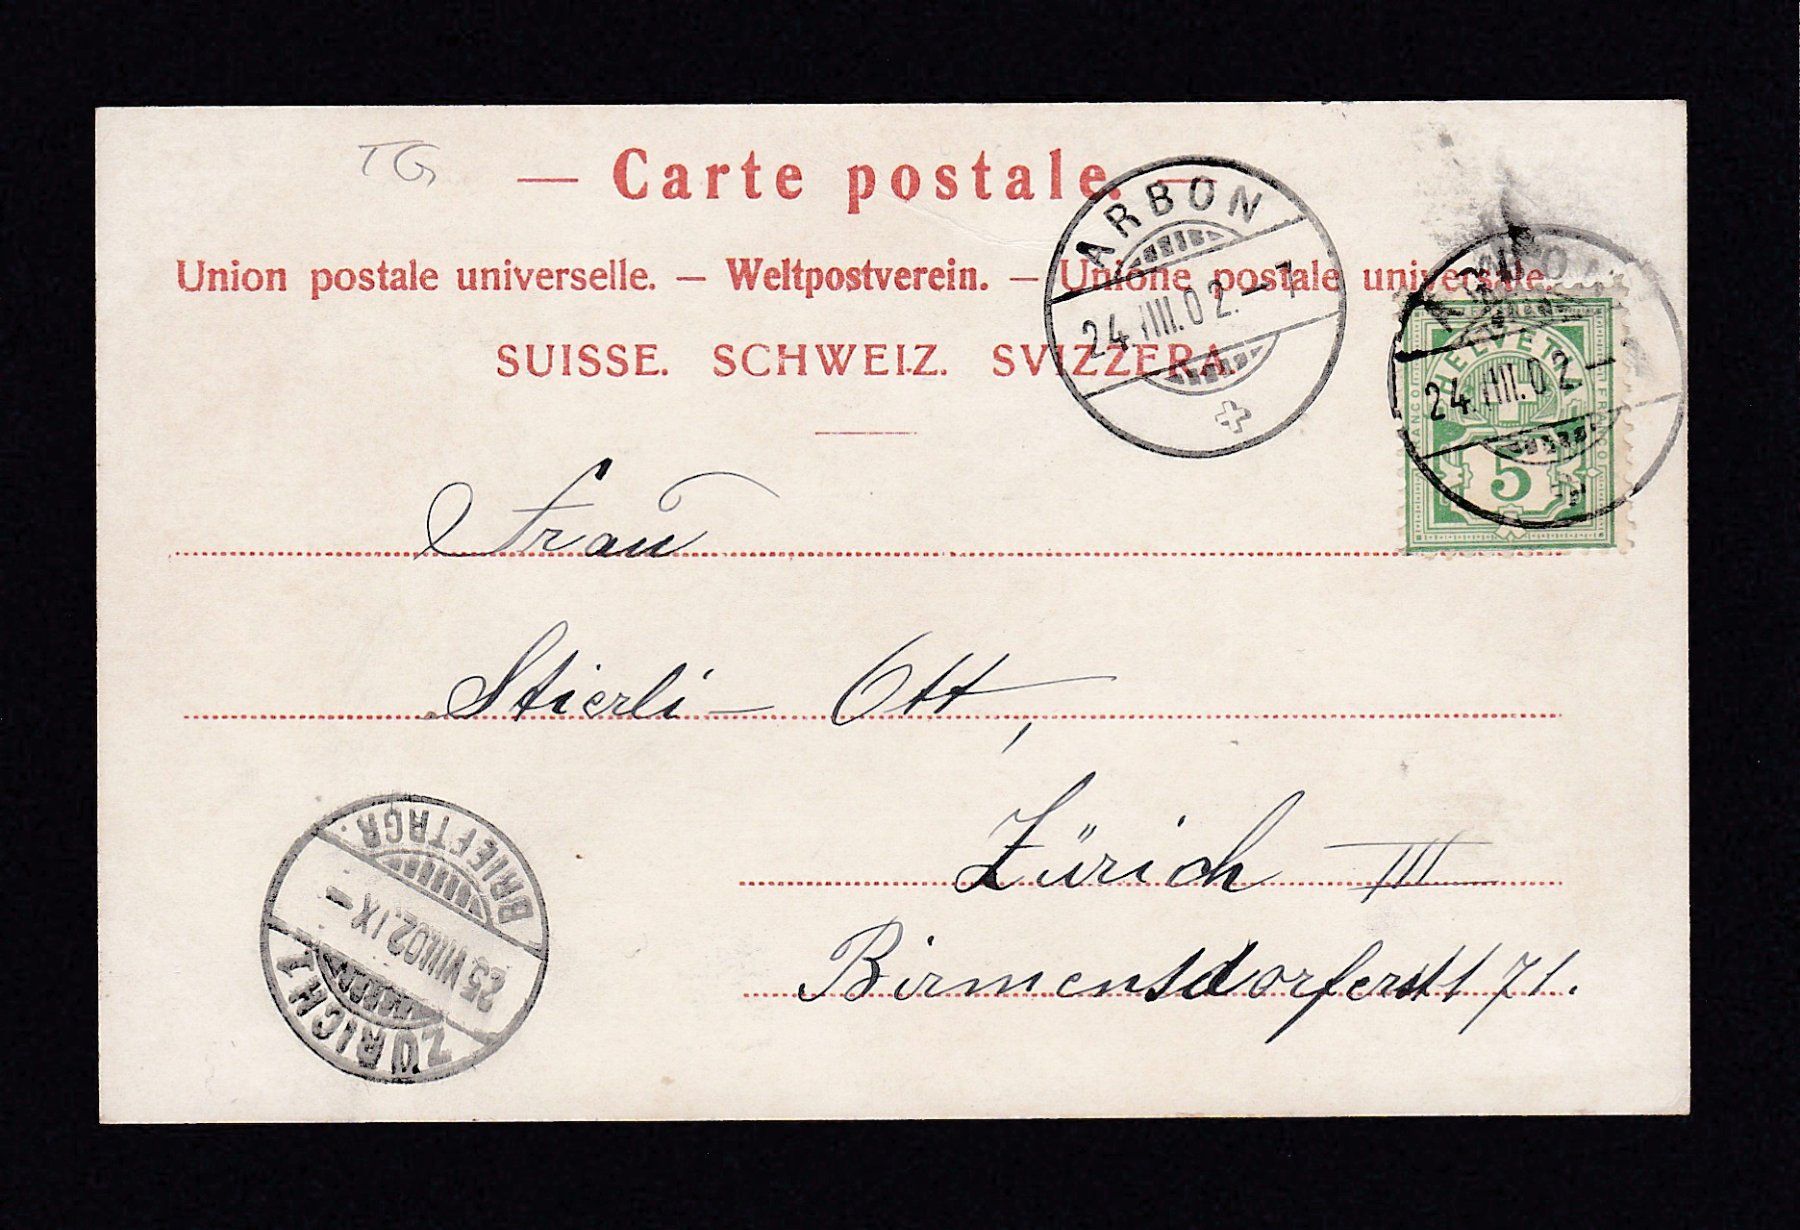 TG
— Carte postale. —
Union postale universelle. — Weltpostverein. — Unione postale universale.
SUISSE. SCHWEIZ. SVIZZERA.
ARBON
24.VIII.02.–7
ARBON
24.VIII.02
HELVETIA
FRANCO
FRANCO
5
Frau
Stierli – Ott,
Zürich III
Birmensdorferstr 71.
BRIEFTRGR.
25.VIII.02.IX–
ZÜRICH